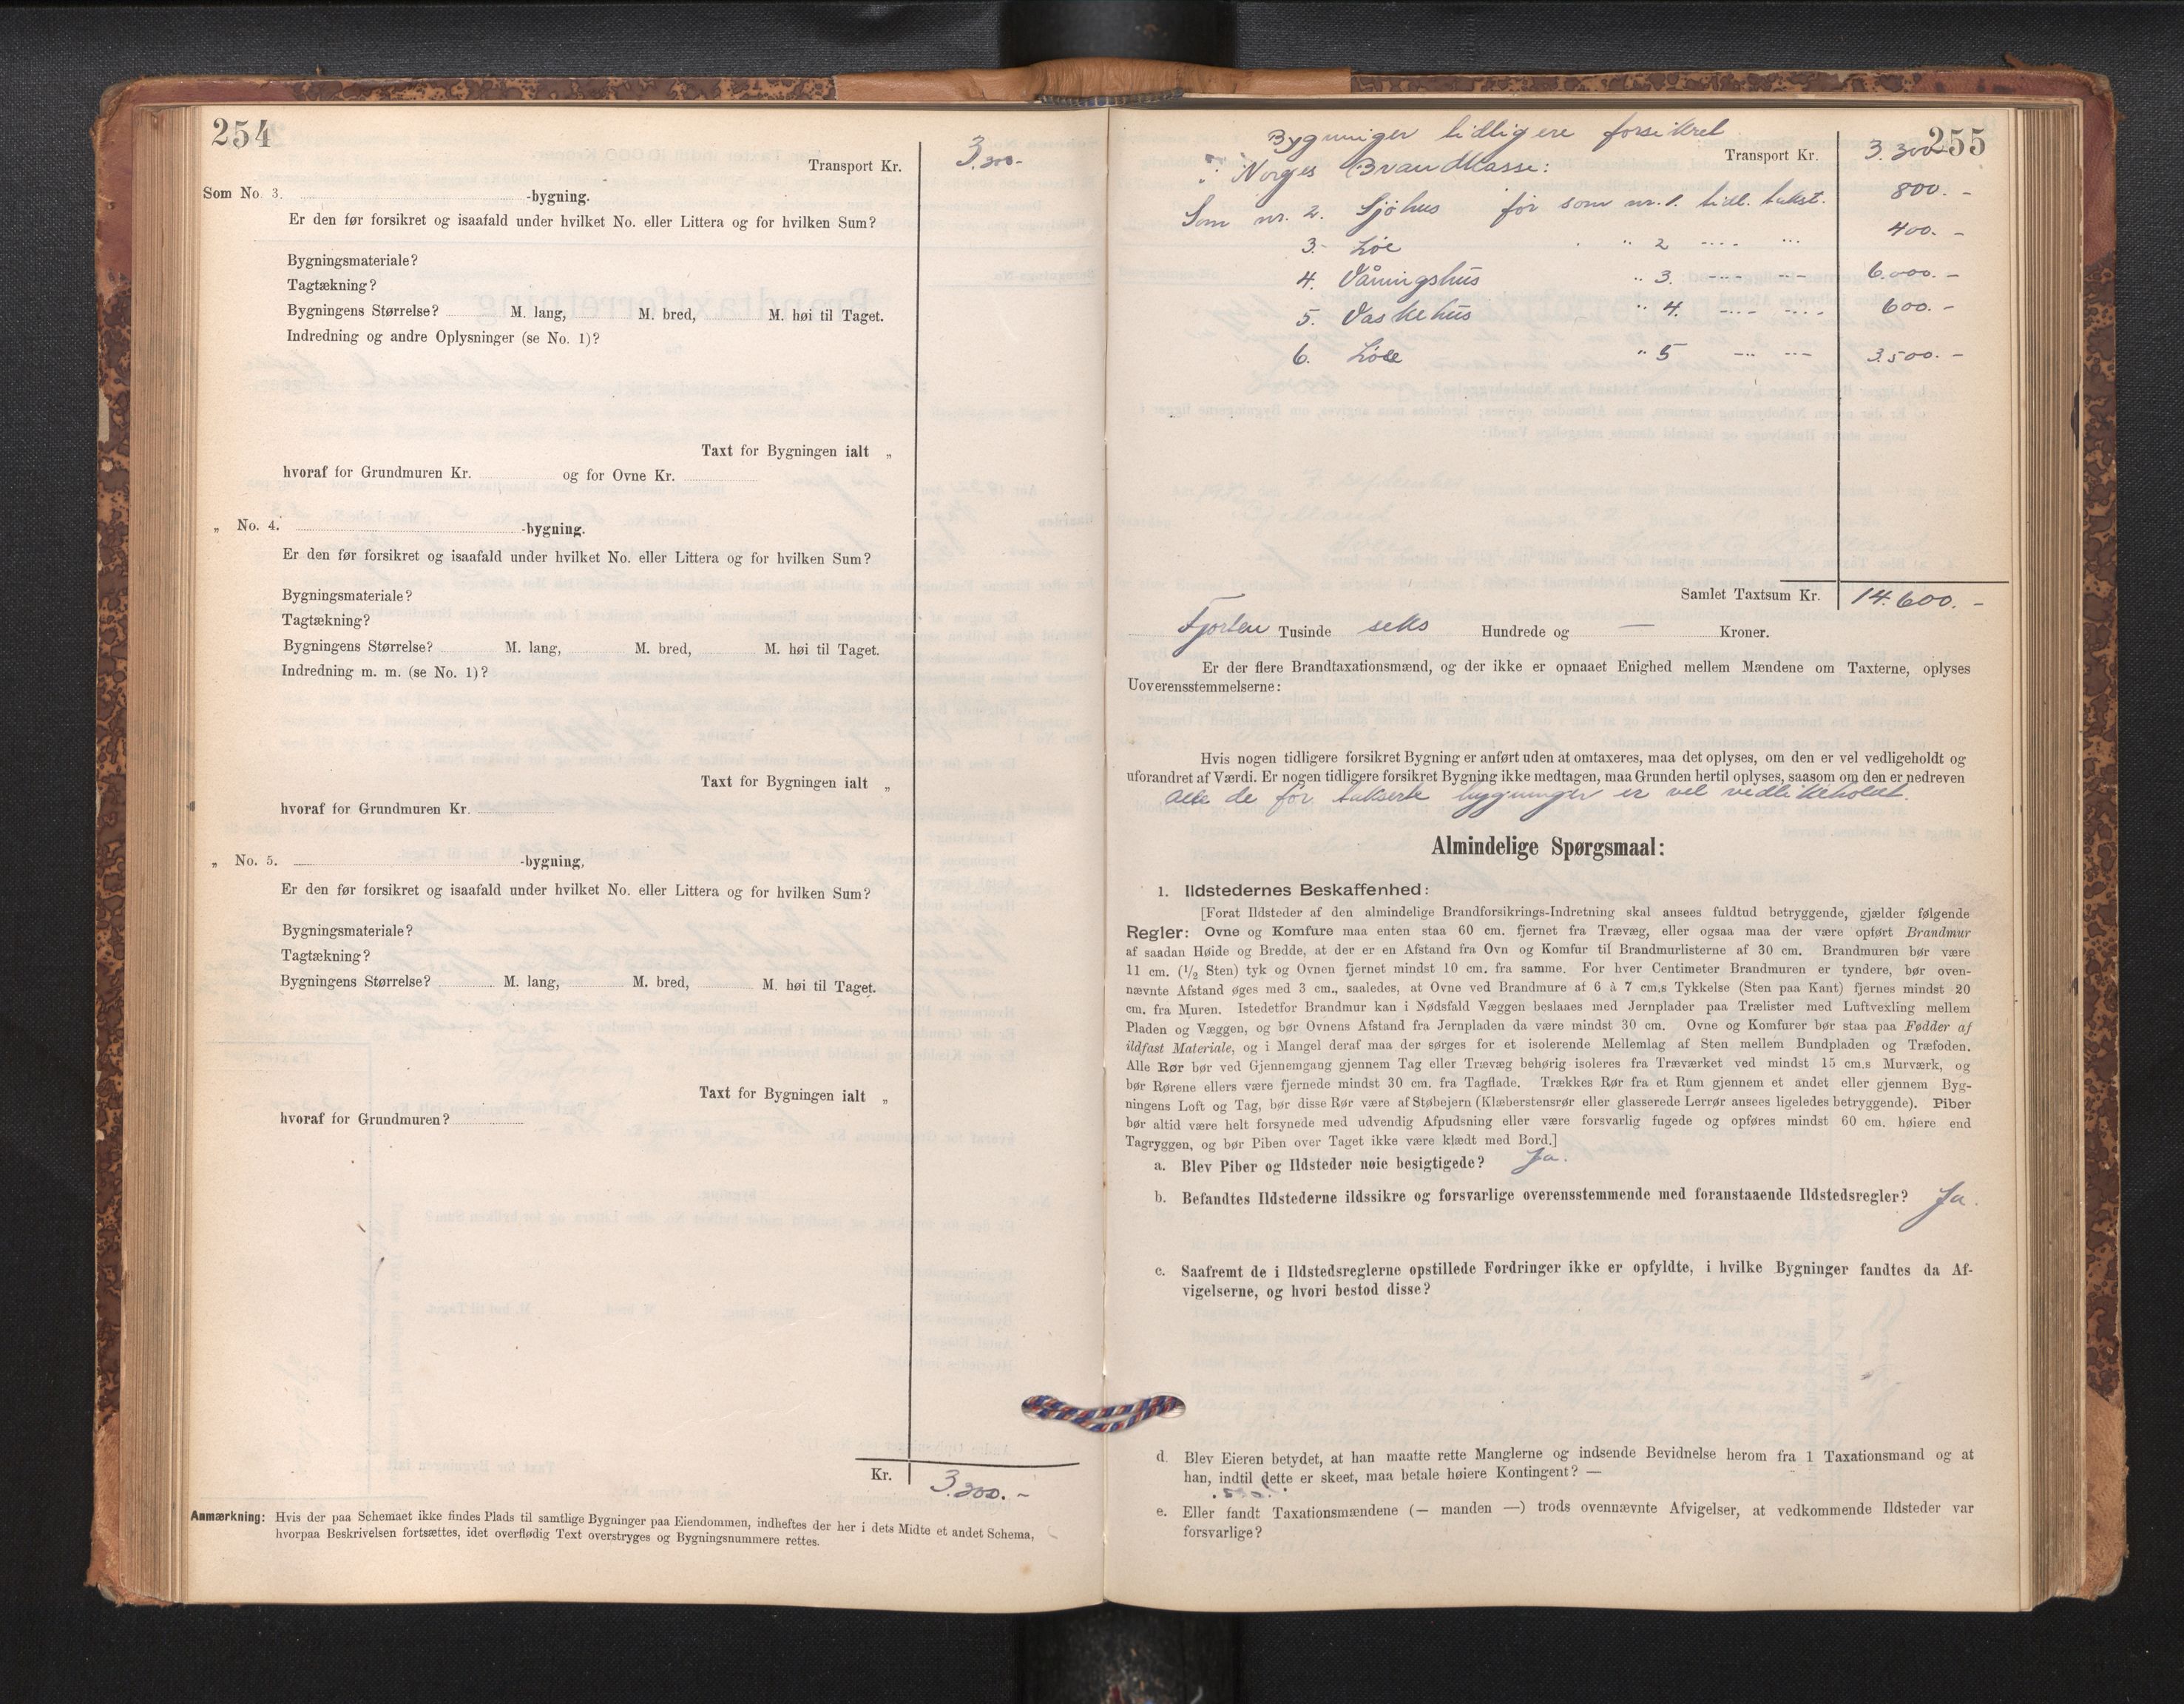 254
Transport Kr. 3.300-
Som No. 3. -bygning.
Er den før forsikret og isaafald under hvilket No. eller Littera og for hvilken Sum?
Bygningsmateriale?
Tagtækning?
Bygningens Størrelse? M. lang, M. bred, M. høi til Taget.
Indredning og andre Oplysninger (se No. 1)?
Taxt for Bygningen ialt „
hvoraf for Grundmuren Kr. og for Ovne Kr.
„ No. 4. -bygning.
Er den før forsikret og isaafald under hvilket No. eller Littera og for hvilken Sum?
Bygningsmateriale?
Tagtækning?
Bygningens Størrelse? M. lang, M. bred, M. høi til Taget.
Indredning m. m. (se No. 1)?
Taxt for Bygningen ialt „
hvoraf for Grundmuren Kr.
„ No. 5. -bygning,
Er den før forsikret og isaafald under hvilket No. eller Littera og for hvilken Sum?
Bygningsmateriale?
Tagtækning?
Bygningens Størrelse? M. lang, M. bred, M. høi til Taget.
Taxt for Bygningen ialt „
hvoraf for Grundmuren?
Kr. 3.300.-
Anmærkning: Hvis der paa Schemaet ikke findes Plads til samtlige Bygninger paa Eiendommen, indheftes der her i dets Midte et andet Schema,
hvorpaa Beskrivelsen fortsættes, idet overflødig Text overstryges og Bygningsnummere rettes.
255
Bygninger tidligere forsikret
Transport Kr. 3.300
i Norges Brandkasse:
Som nr. 2. Sjøhus før som nr. 1. tidl. takst. 800.-
3. Løe " 2 400.-
4. Våningshus " 3. 6.000.-
5. Vaskehus " 4. 600.-
6. Løe " 5 3.500.-
Samlet Taxtsum Kr. 14.600.-
Fjorten Tusinde seks Hundrede og — Kroner.
Er der flere Brandtaxationsmænd, og der ikke er opnaaet Enighed mellem Mændene om Taxterne, oplyses
Uoverensstemmelserne:
Hvis nogen tidligere forsikret Bygning er anført uden at omtaxeres, maa det oplyses, om den er vel vedligeholdt og
uforandret af Værdi. Er nogen tidligere forsikret Bygning ikke medtagen, maa Grunden hertil oplyses, saasom om den er nedreven
Alle de før takserte bygninger er vel vedlikeholdt.
Almindelige Spørgsmaal:
1. Ildstedernes Beskaffenhed:
[Forat Ildsteder af den almindelige Brandforsikrings-Indretning skal ansees fuldtud betryggende, gjælder følgende
Regler: Ovne og Komfure maa enten staa 60 cm. fjernet fra Trævæg, eller ogsaa maa der være opført Brandmur
af saadan Høide og Bredde, at der er en Afstand fra Ovn og Komfur til Brandmurlisterne af 30 cm. Brandmuren bør være
11 cm. (1/2 Sten) tyk og Ovnen fjernet mindst 10 cm. fra samme. For hver Centimeter Brandmuren er tyndere, bør oven-
nævnte Afstand øges med 3 cm., saaledes, at Ovne ved Brandmure af 6 à 7 cm.s Tykkelse (Sten paa Kant) fjernes mindst 20
cm. fra Muren. Istedetfor Brandmur kan i Nødsfald Væggen beslaaes med Jernplader paa Trælister med Luftvexling mellem
Pladen og Væggen, og bør Ovnens Afstand fra Jernpladen da være mindst 30 cm. Ovne og Komfurer bør staa paa Fødder af
ildfast Materiale, og i Mangel deraf maa der sørges for et isolerende Mellemlag af Sten mellem Bundpladen og Træfoden.
Alle Rør bør ved Gjennemgang gjennem Tag eller Trævæg behørig isoleres fra Træværket ved mindst 15 cm.s Murværk, og
bør Rørene ellers være fjernede mindst 30 cm. fra Tagflade. Trækkes Rør fra et Rum gjennem et andet eller gjennem Byg-
ningens Loft og Tag, bør disse Rør være af Støbejern (Klæberstensrør eller glasserede Lerrør ansees ligeledes betryggende). Piber
bør altid være helt forsynede med udvendig Afpudsning eller være forsvarlig fugede og opføres mindst 60 cm. høiere end
Tagryggen, og bør Piben over Taget ikke være klædt med Bord.]
a. Blev Piber og Ildsteder nøie besigtigede? Ja.
b. Befandtes Ildstederne ildssikre og forsvarlige overensstemmende med foranstaaende Ildstedsregler? Ja.
c. Saafremt de i Ildstedsreglerne opstillede Fordringer ikke er opfyldte, i hvilke Bygninger fandtes da Af-
vigelserne, og hvori bestod disse?
d. Blev Eieren betydet, at han maatte rette Manglerne og indsende Bevidnelse herom fra 1 Taxationsmand og at
han, indtil dette er skeet, maa betale høiere Kontingent? —
e. Eller fandt Taxationsmændene (— manden —) trods ovennævnte Afvigelser, at vedkommende Ildsteder var
forsvarlige?